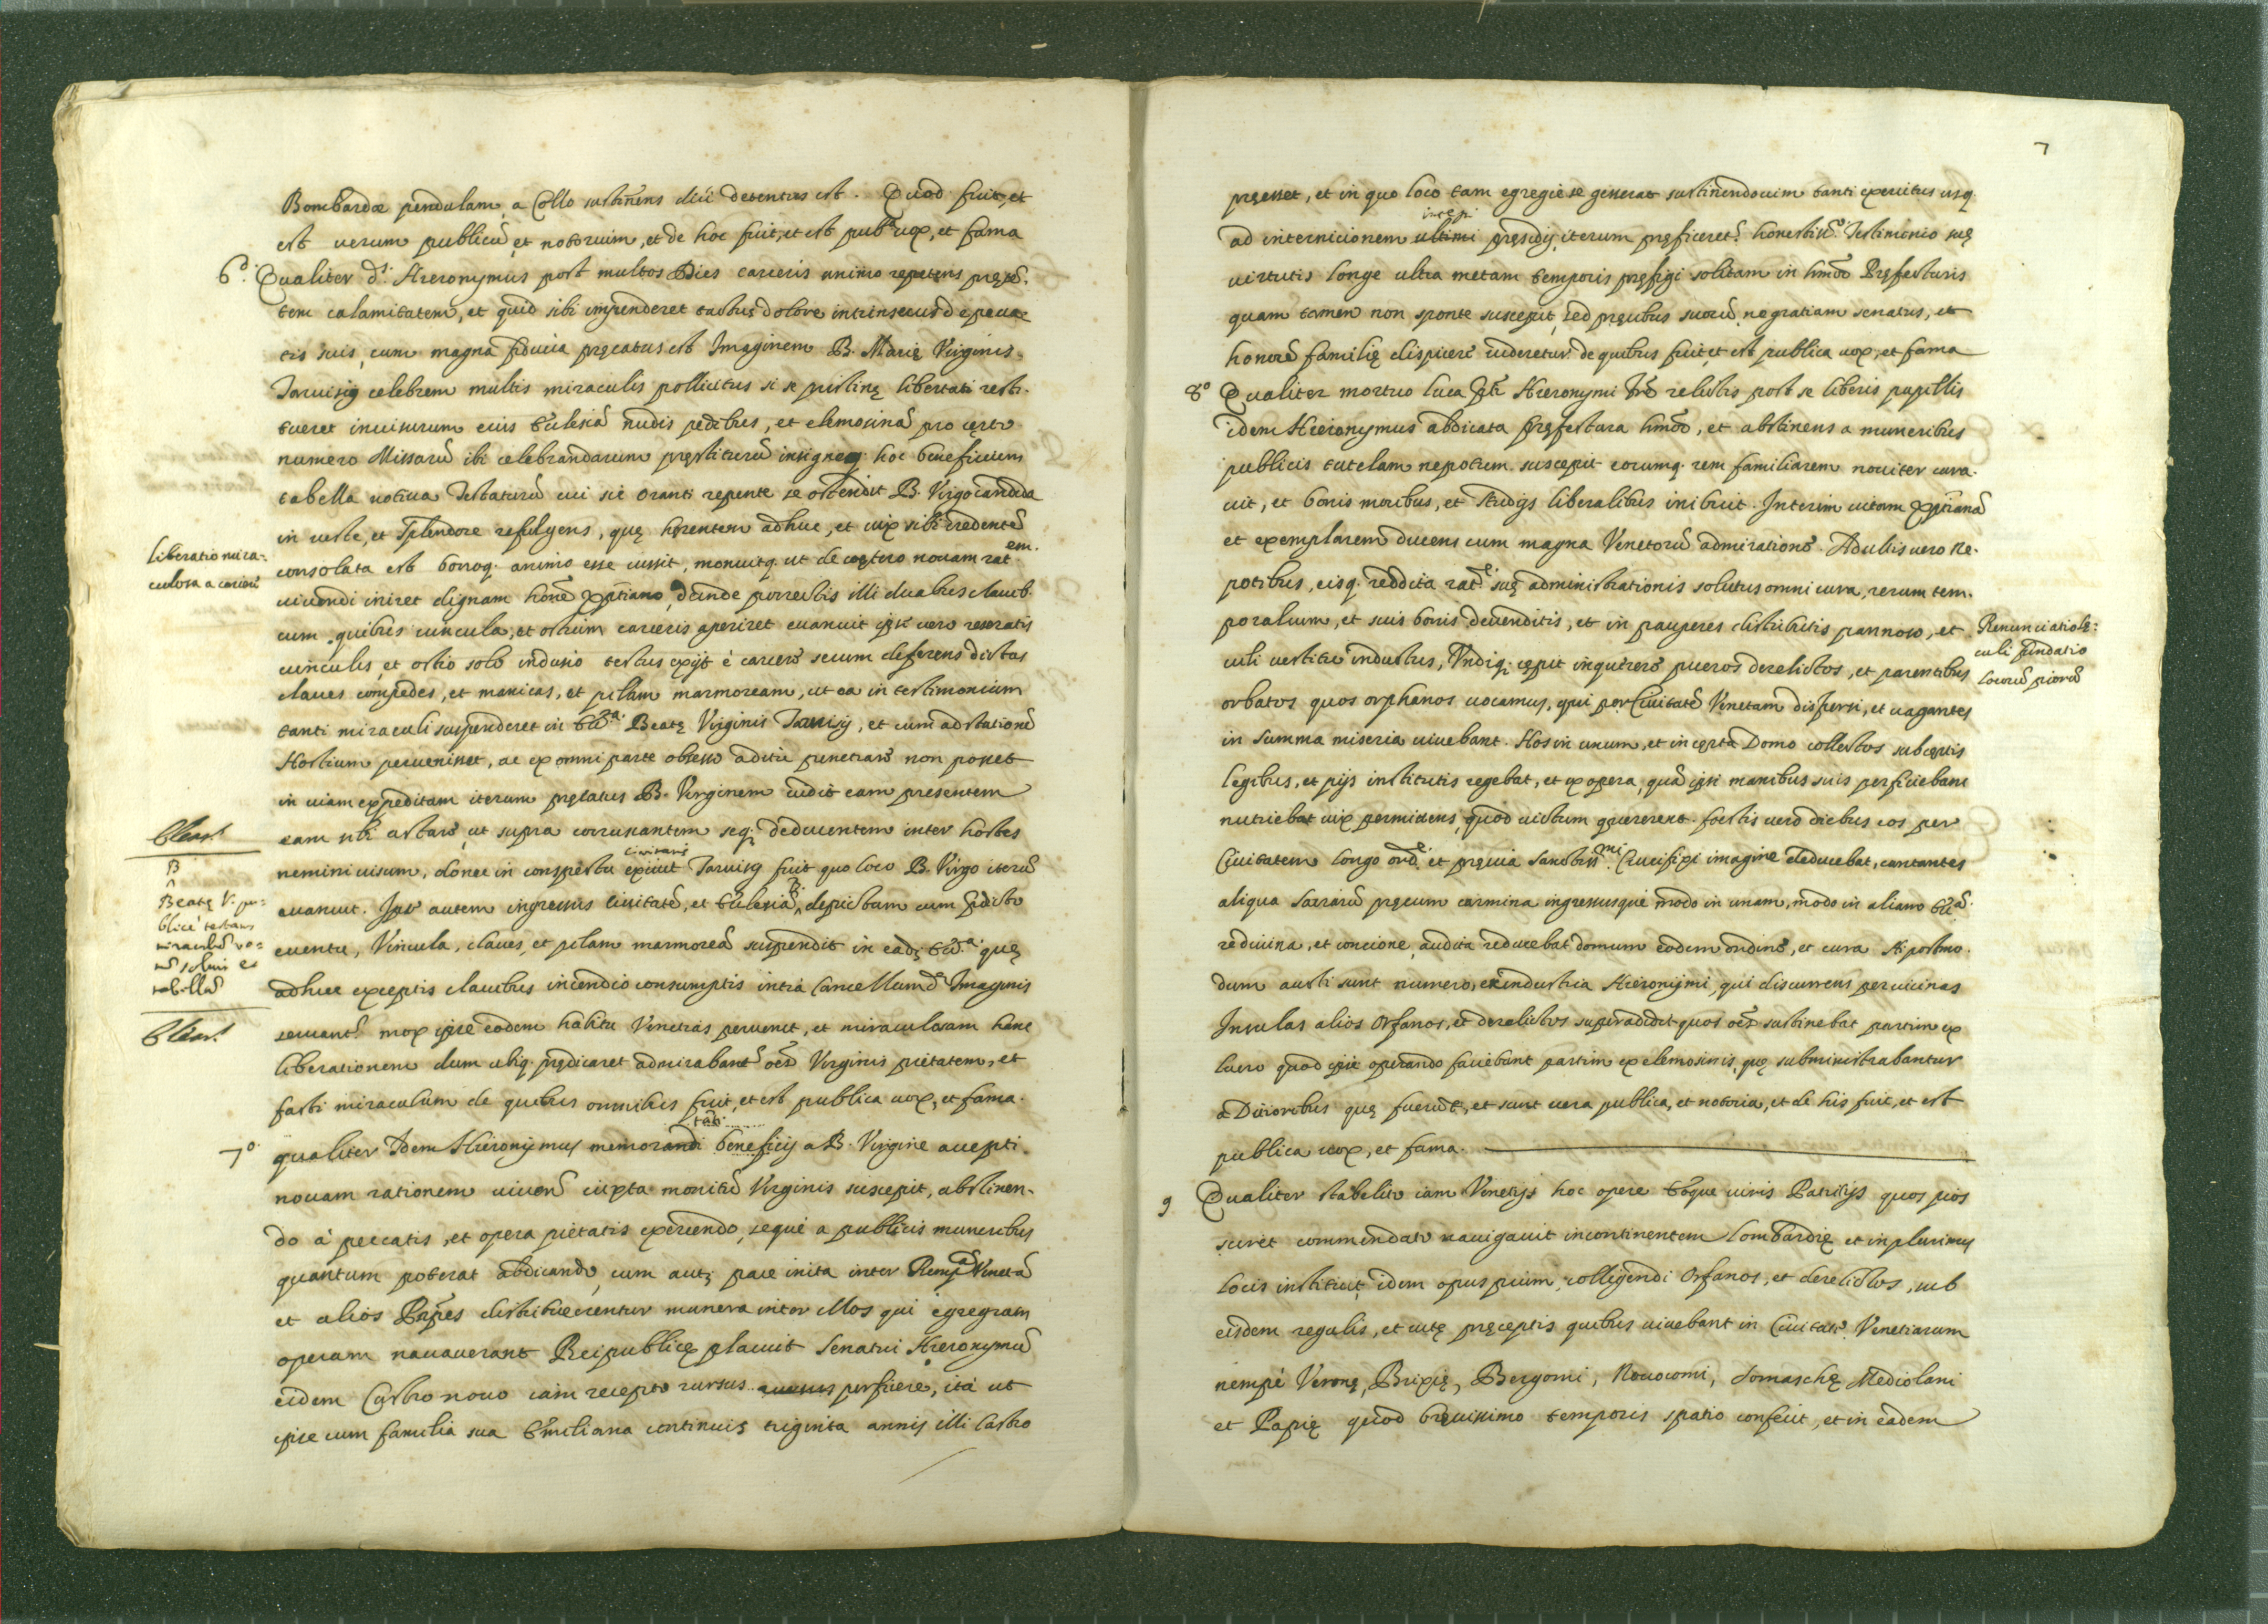 Bombardæ pendulam, a Collo sustinens diù detentus est. Quod fuit, et
est uerum publicũ et notorium, et de hoc fuit, et est pub.ª uox, et fama
6º. Qualiter d.s Hieronymus post multos Dies carceris animo repetens pręsẽ.
tem calamitatem, et quid sibi impenderet tactus dolore intrinsecus de pecca
tis suis, cum magna fiducia pręcatus est Imaginem B. Marię Virginis
Taruisij celebrem multis miraculis pollicitus si se pristinę libertati resti.
tueret inuisurum eius Ecclesiã nudis pedibus, et elemosinã pro certo
numero Missarũ ibi celebrandarum pręstiturũ insigneq. hoc beneficium
tabella uotiua Testaturũ cui sic oranti repente se ostendit B. Virgo candida
in ueste, et splendore refulgens, quę hęrentem adhuc, et uix sibi credentẽ
liberatio mira-
culosa a carcere
consolata est bonoq. animo esse iussit, monuitq. ut de cętero nouam rat.em
uiuendi iniret dignam hoñe xp̃tiano, deinde porrectis illi duabus clauib.
cum quibus uincula, et ostium carceris aperiret euanuit ipse uero reseratis
uinculis, et ostio solo indusio tectus exijt è carcere secum deferens dictas
claues compedes, et manicas, et pilam marmoream, ut ea in testimonium
tanti miraculi suspenderet in Ecc.ª Beatę Virginis Taruisij, et cum ad stationẽ
Hostium peruenisset, ac ex omni parte obsesso aditu penetrare non posset
in uiam expeditam iterum pręcatus B. Virginem uidit eam presentem
eam sibi astare, ut supra corruscantem seq. deducentem inter hostes
nemini uisum, donec in conspectu ciuitatis Taruisij fuit quo loco B. Virgo iterũ
B
Beatę V. pu-
blicè testans
miraculũ uo-
tũ soluit et
tabellã
euanuit. Ipse autem ingressus ciuitatẽ, et Ecclesiã, depictam cum prędicto
euentu, Vincula, claues, et pilam marmoreã suspendit in eadẽ Ecc.ª quę
adhuc exceptis clauibus incendio consumptis intra Cancellum d. Imaginis
seruant.r mox ipse eodem habitu Venetias peruenit, et miraculosam hanc
liberationem dum ubiq. prędicaret admirabant.r oẽs Virginis pietatem, et
facti miraculum de quibus omnibus fuit, et est publica uox, et fama.
7º. qualiter Idem Hieronymus memorandi beneficij a B. Virgine accepti.
nouam rationem uiuendi iuxta monitũ Virginis suscepit, abstinen.
do à peccatis, et opera pietatis exercendo, sequè a publicis muneribus
quantum poterat abdicando, cum autẽ pace inita inter Remp.ã Venetã
et alios Prĩpes distribuerentur munera inter illos qui egregiam
operam nauauerant Reipublicę placuit Senatui Hieronymũ
eidem Castro nouo iam recepto rursus pręficere, ità ut
ipse cum familia sua Emiliana continuis triginta annis illi Castro
7
pręesset, et in quo loco tam egregiè se gesserat sustinendo uim tanti exercitus usq.
ad internicionem ultimi pręsidij, iterum pręficeret.r honestiss.º Testimonio suę
uirtutis longe ultra metam temporis pręfigi solitam in hm̃oi Pręfecturis
quam tamen non sponte suscepit, sed pręcibus suorũ, ne gratiam senatus, et
honorẽ familię dispicere uideretur de quibus fuit, et est publica uox, et fama
8º Qualiter mortuo Luca Hieronymi frẽ relictis post se liberis pupillis
idem Hieronymus abdicata pręfectura hm̃oi, et abstinens a muneribus
publicis tutelam nepotum suscepit eorumq. rem familiarem nouiter cura.
uit, et bonis moribus, et studijs liberalibus inibuit. Interim uitam xp̃tianã
et exemplarem ducens cum magna Venetorũ admiratione. Adultis uero ne.
potibus, eisq. reddita rat.e suę administrationis solutus omni cura, rerum tem.
poralium, et suis bonis deuenditis, et in pauperes distributis pannoso, et
Renunciatio sę-
culi fundatio
locorũ piorũ
uili uestitu indutus, Vndiq. cępit inquirere pueros derelictos, et parentibus
orbatos quos orphanos uocamus, qui per Ciuitatẽ Venetam dispersi, et uagantes
in summa miseria uiuebant. Hos in unum, et in cępta Domo collectos sub certis
legibus, et pijs institutis regebat, et ex opera, quã ipsi manibus suis perficiebant
nutriebat uix permittens, quòd uictum quęrerent. foestis uerò diebus eos per
Ciuitatem longo ord.e et pręuia Sanctiss.mi Crucifixi imagine deducebat, cantantes
aliqua Sacrarũ pręcum carmina ingressusque modo in unam, modo in aliam Ecc.ã
re diuina, et concione audita reducebat domum eodem ordine, et cura. Hi postmo.
dum aucti sunt numero, et industria Hieronymi, qui discurrens per uicinas
Insulas alios Orfanos, et derelictos superaddidit quos oẽs sustinebat partim ex
lucro quod ipsi operando faciebant partim ex elemosinis, quę subministrabantur
a Ditioribus quę fuerũt, et sunt uera publica, et notoria, et de his fuit, et est
publica uox, et fama.
9 Qualiter stabilito iam Venetijs hoc opere uiris Patritijs quos pios
sciret commendato nauigauit in continentem Lombardię et in plurimis
locis instituit idem opus pium, colligendi Orfanos, et derelictos, sub
eisdem regulis, et uitę pręceptis quibus uiuebant in Ciuitate Venetiarum
nempè Veronę, Brixię, Bergomi, Nouocomi, Somaschę Mediolani
et Papię quod breuissimo temporis spatio confecit, et in eadem